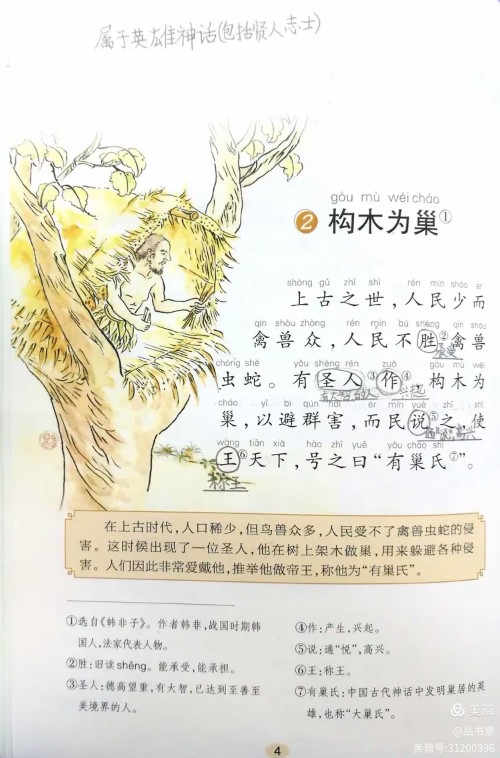 属于英雄神话(包括贤人志士)
gòu mù wéi cháo
2 构木为巢①
shàng gǔ zhī shì rén mín shǎo ér
上古之世，人民少而
qín shòu zhòng rén mín bù shēng qín shòu
禽兽众，人民不胜②禽兽
chóng shé yǒu shèng rén zuò gòu mù wéi
虫蛇。有圣人③作④，构木为
兴起
cháo yǐ bì qún hài ér mín yuè zhī shǐ
巢，以避群害，而民说⑤之，使
wàng tiān xià hào zhī yuē yǒu cháo shì
王⑥天下，号之曰“有巢氏⑦”。
称王
在上古时代，人口稀少，但鸟兽众多，人民受不了禽兽虫蛇的侵
害。这时候出现了一位圣人，他在树上架木做巢，用来躲避各种侵
害。人们因此非常爱戴他，推举他做帝王，称他为“有巢氏”。
①选自《韩非子》。作者韩非，战国时期韩
国人，法家代表人物。
②胜：旧读shēng。能承受，能承担。
③圣人：德高望重，有大智，已达到至善至
美境界的人。
④作：产生，兴起。
⑤说：通“悦”，高兴。
⑥王：称王。
⑦有巢氏：中国古代神话中发明巢居的英
雄，也称“大巢氏”。
4
美篇
@品书堂
美篇号:31200936